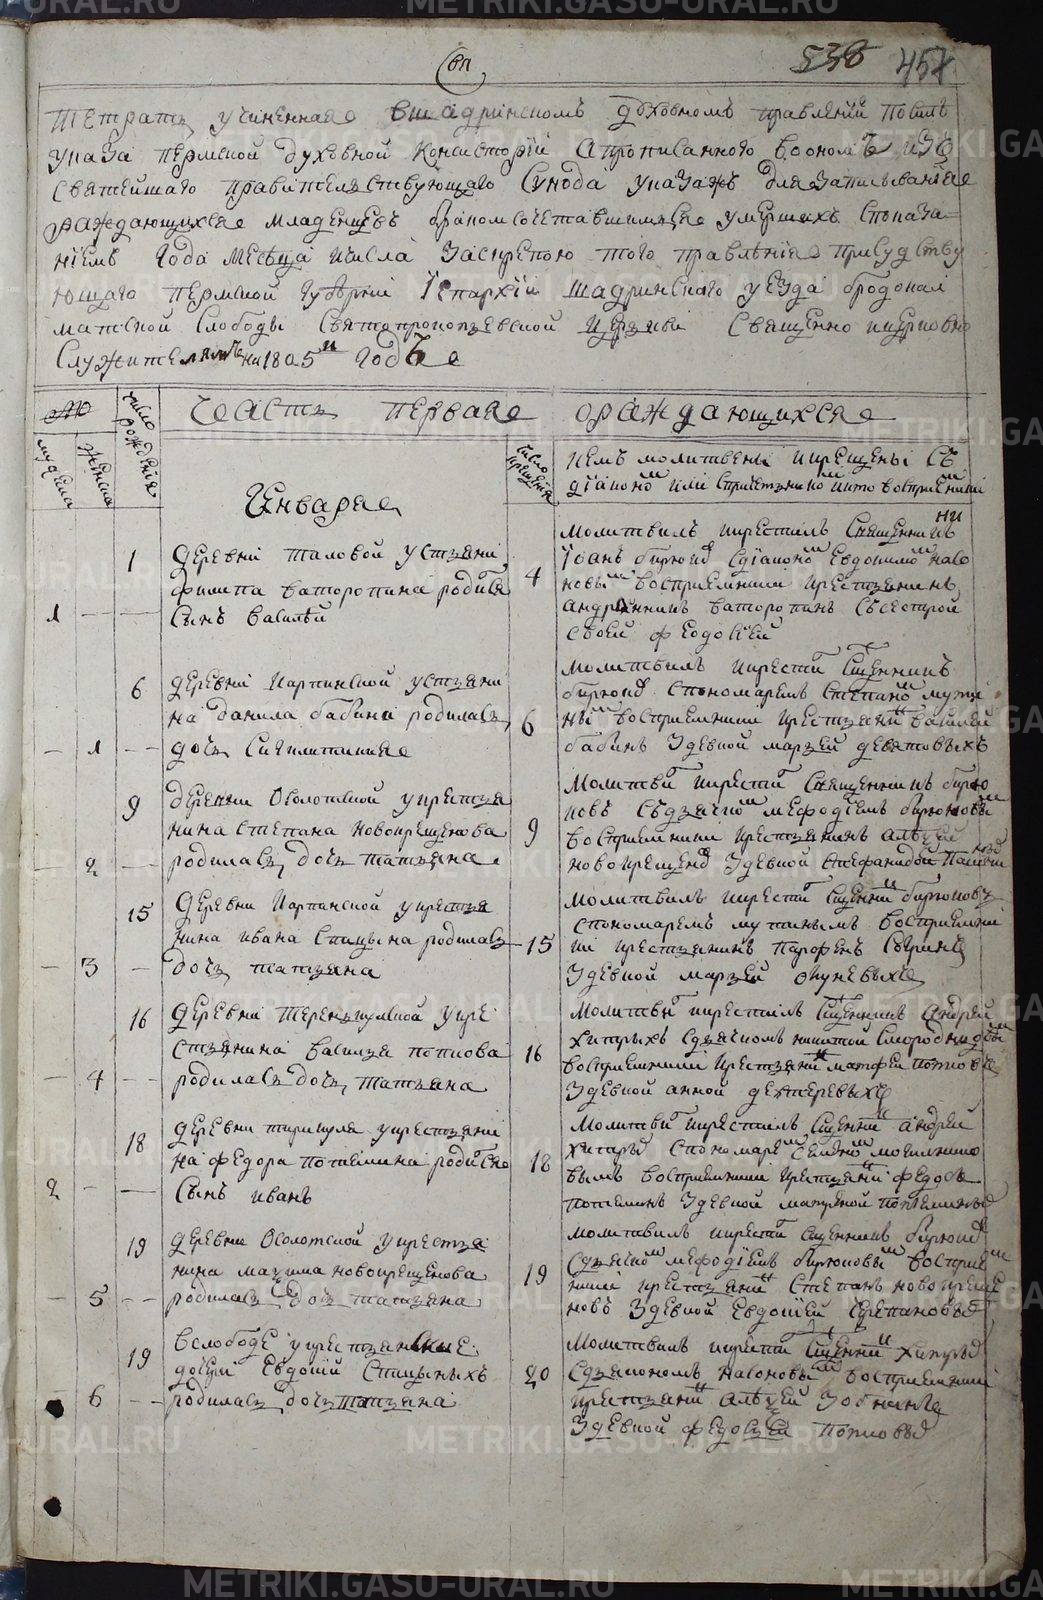 METRIKI.GASU-URAL.RU
538 457
Тетрать учиненная вшадринскомъ духовномъ правлении повиль
указа пермской духовной консисторїи опрописанного воономъ изъ
Святейшаго правительствующаго Сунода указахъ длязаписывания
раждающихся младенцевъ бракомсочетавшимся умершихъ споказа
нїемъ года месяца ичисла заскрепою того правлѣния присудству
ющаго пермской губернїи їепархїи шадринского уезда бродокал
матской слободы святопрокопьевской церкви священно ицерковно
служителямъ на 1805 годъ
Часть первая ораждающихся
мужеска
женска
число рождения
Генваря
число крещения
кемъ молитвены икрещены съ
дїакономъ или спричетникомъ икто восприемники
1 деревни таловой укрстьяни
филипа ваторопина родился
1 сынъ василей
4 молитвилъ икрестилъ священникъ
їоанъ бирюковъ сдїакономъ евдокимомъ нако
новымъ восприемники крестьянинъ
андрей ваторопинъ съсестрой
своей федосїей
6 деревни карпинской укрстьяни
на данила бабина родилась
1 дочь синклитикия
6 молитвилъ икрести сщенникъ
бирюковъ спономаремъ степаномъ мутки
нымъ восприемники крестьянинъ василей
бабинъ здевкой марьей девятовыхъ
9 деревни осолоткой укрестья
нина степана новокрещенова
2 родилась дочь татьяна
9 молитви икрести священникъ бирю
ковъ съдьячкомъ мефодїемъ бирюковымъ
восприемники крестьянинъ алѣксей
новокрещеновъ здевкой стефанидой
15 деревни карпинской укрестья
нина ивана спицына родилась
3 дочь татьяна
15 молитвилъ икрести сщенни бирюковъ
спономаремъ муткинымъ восприемни
ки крестьянинъ парфенъ
здевкой марьей окуневыхъ
16 деревни теренкульской укре
стьянина василья попкова
4 родилась дочь татьяна
16 молитви икрестилъ сщенникъ андрей
хитрыхъ сдьячкомъ никитой смородиновы
восприемники крестьяни матфей попковъ
здевкой анной дехтеревыхъ
18 деревни тирикуля укрестьяни
на федора потемкина родился
2 сынъ иванъ
18 молитви икрестилъ сщенни андрей
хитрыхъ спономаремъ семеномъ могильнико
вымъ восприемники крестьяни федосъ
потемкинъ здевкой матреной потемкиныхъ
19 деревни осолоткой укрестья
нина максима новокрещенова
5 родилась дочь татьяна
19 молитвилъ икрести сщенникъ бирюковъ
сдьячкомъ мефодїемъ бирюковымъ восприем
ники крестьяни степанъ новокреще
новъ здевкой евдокїей
19 вслободе укрестьянские
дочери евдокїи спицыныхъ
6 родилась дочь татьяна
20 молитвилъ икрести сщенни хитрыхъ
сдьякономъ наконовымъ восприемники
крестьяни алѣксей зобнинъ
здевкой федосьей попковыхъ